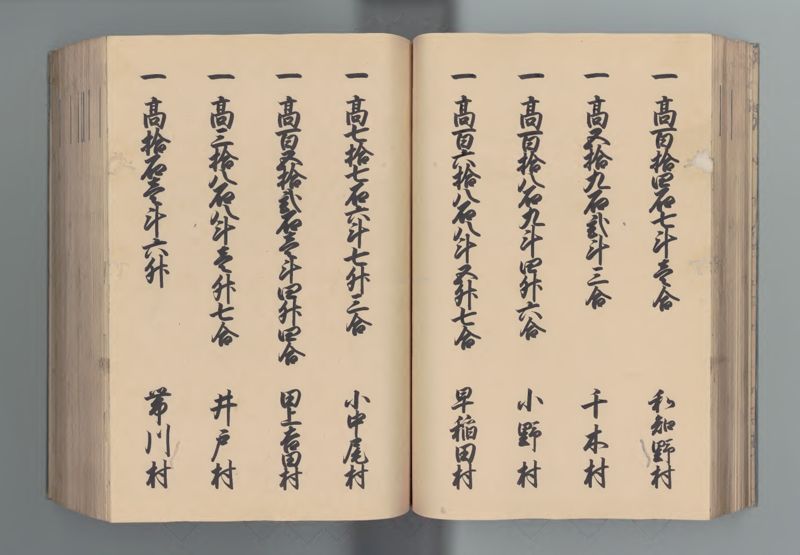 一 高百拾四石七斗壱合 和知野村
一 高五拾九石弐斗三合 千木村
一 高百拾八石九斗四升六合 小野村
一 高百六拾八石八斗五升七合 早稲田村
一 高七拾七石六斗七升三合 小中尾村
一 高百五拾弐石壱斗四升四合 田上吉田村
一 高三拾八石八斗壱升七合 井戸村
一 高拾石壱斗六升 帯川村